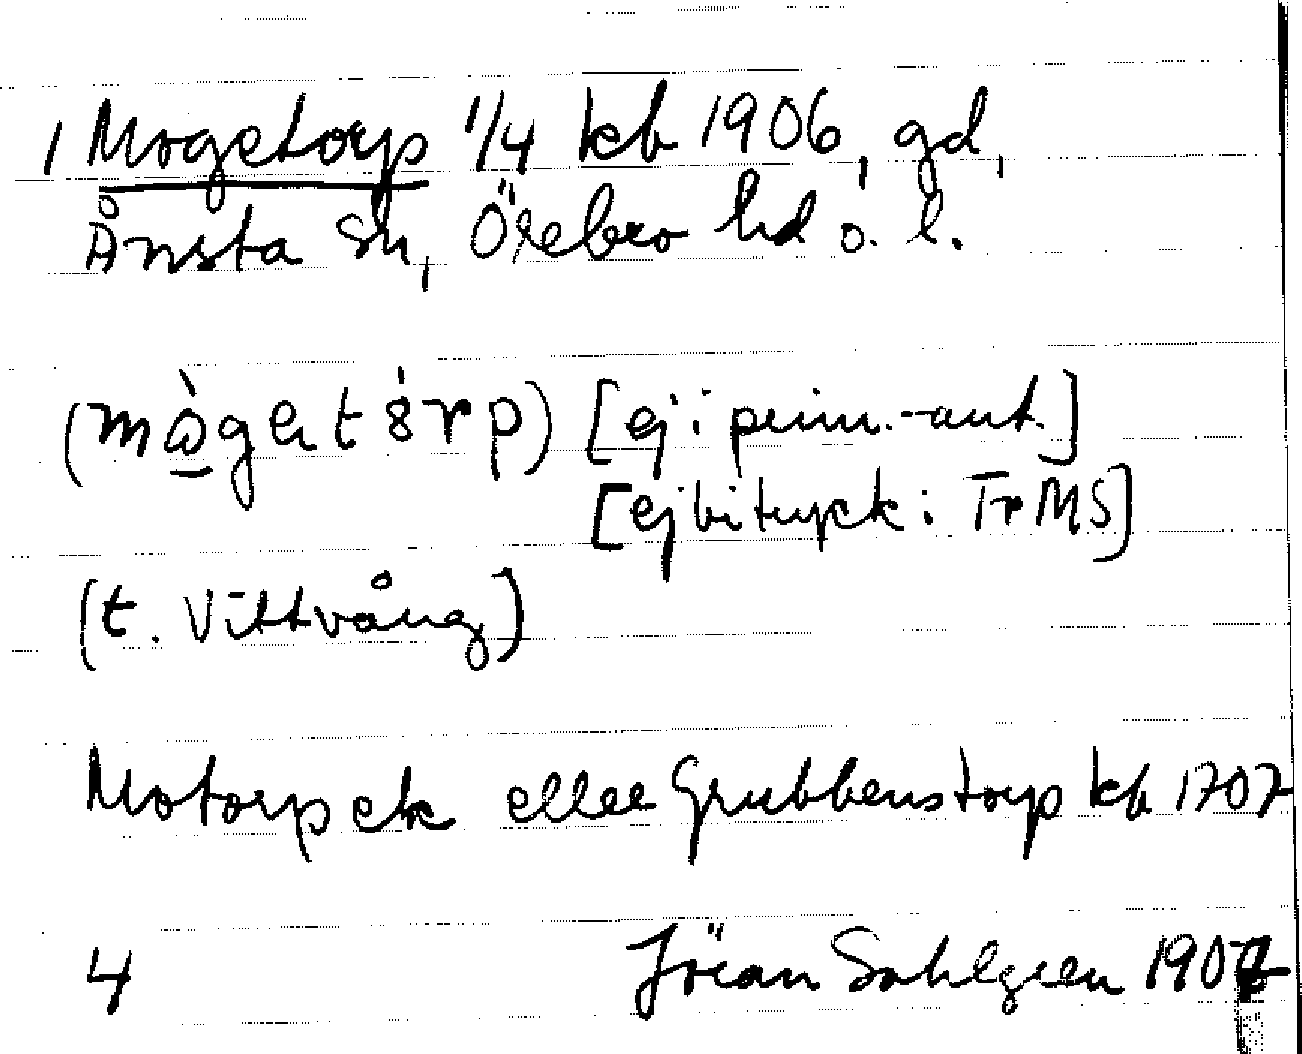 1 Mogetorp 1/4 kb 1906, gd,
Ånsta sn, Örebro hd o. l.
[ej i prim.-ant.]
[ej bitryck i TrMS]
(t. Vittvång)
Motorp ek eller Grubbenstorp kb 1707
4 Jöran Sahlgren 1907